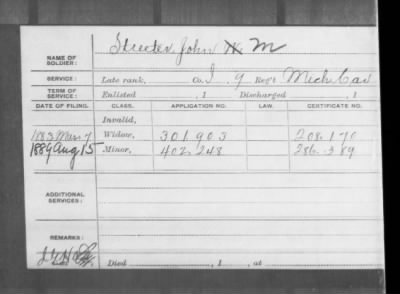 NAME OF SOLDIER: Streeter, John M
SERVICE: Late rank, Co. I, 9 Reg't Mich Cav
TERM OF SERVICE: Enlisted , 1 Discharged , 1
DATE OF FILING. CLASS. APPLICATION NO. LAW. CERTIFICATE NO.
Invalid,
1883 Mar 7 Widow, 301.903 208.170
1889 Aug 15 Minor, 402.248 286.389
ADDITIONAL SERVICES:
REMARKS:
Died , 1 , at